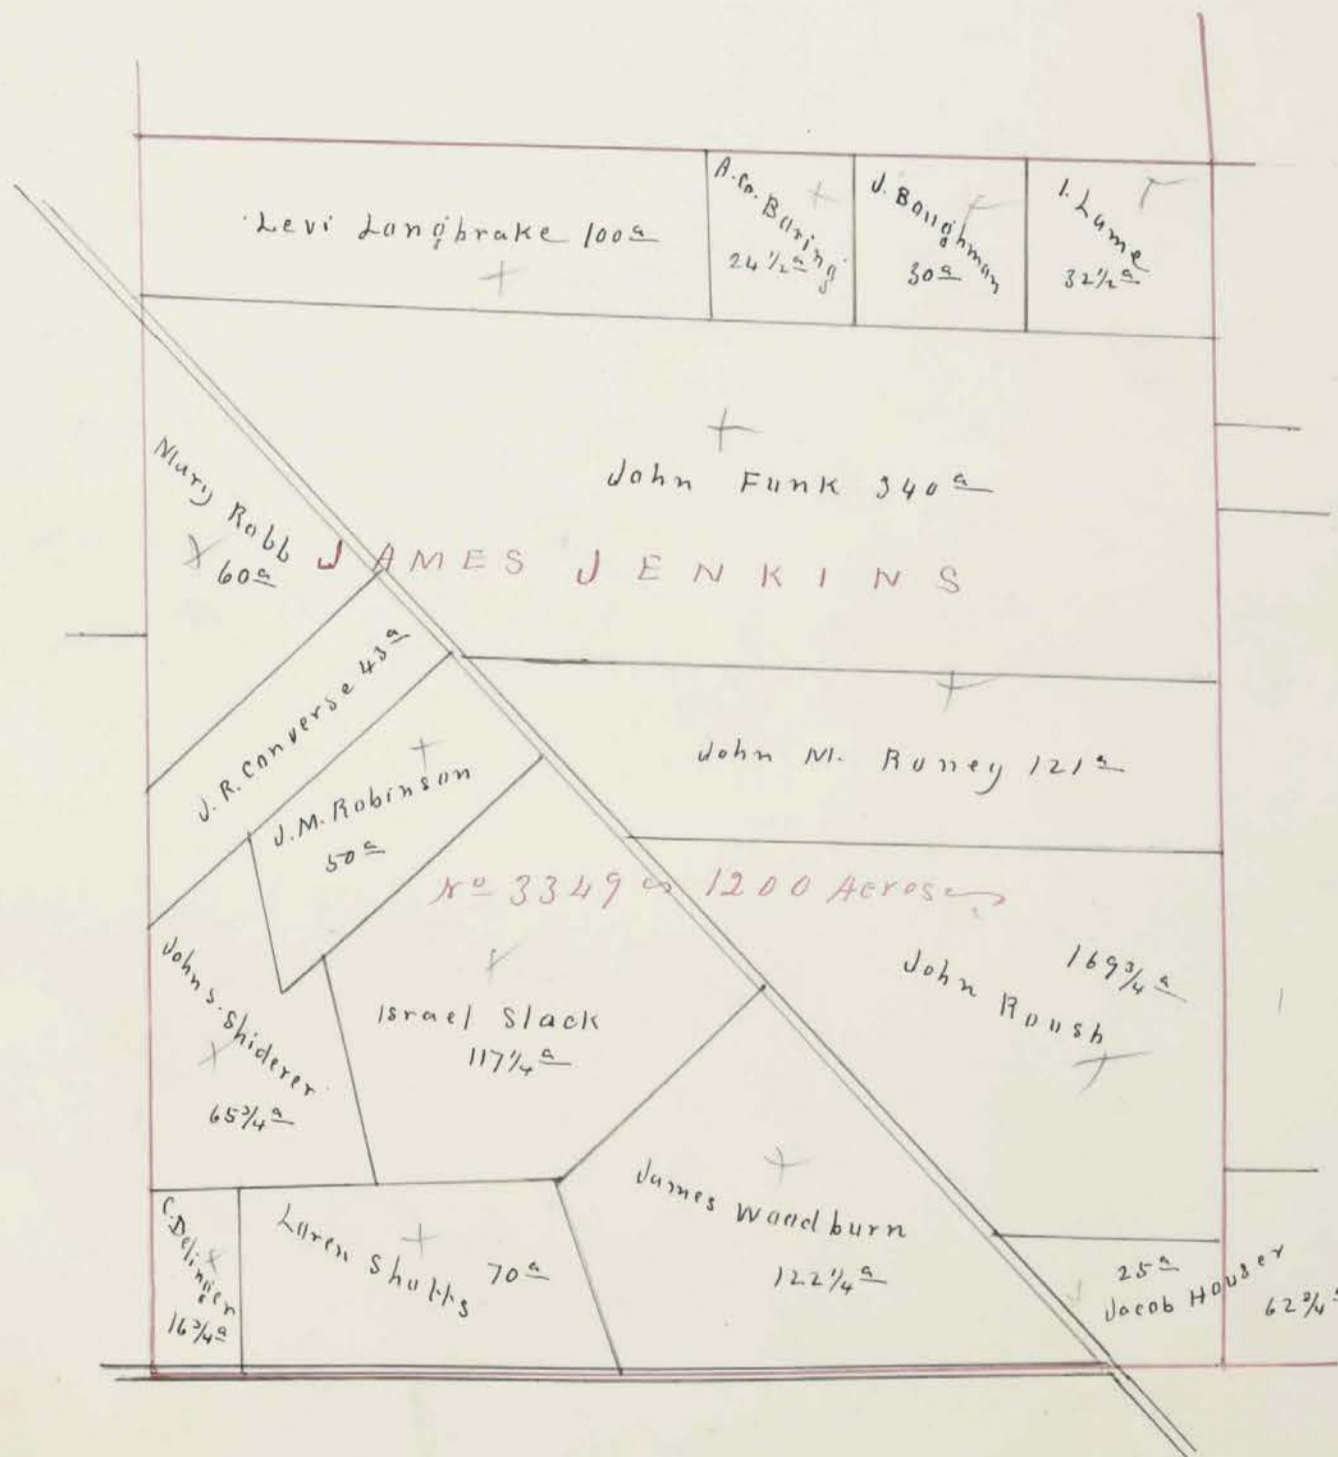 Levi Longbrake 100a
A. Co. Baring
24 1/2a
J. Boughman
30a
I. Lame
32 1/2a
John Funk 340a
Mary Robb
60a
JAMES JENKINS
J.R. Converse 43a
J.M. Robinson
50a
John M. Roney 121a
No 3349 1200 Acres
John S. Shiderer
65 3/4a
Israel Slack
117 1/4a
John Roush
169 3/4a
C. Delinger
16 3/4a
Loren Shutts 70a
James Woodburn
122 1/4a
25a
Jacob Houser
62 3/4